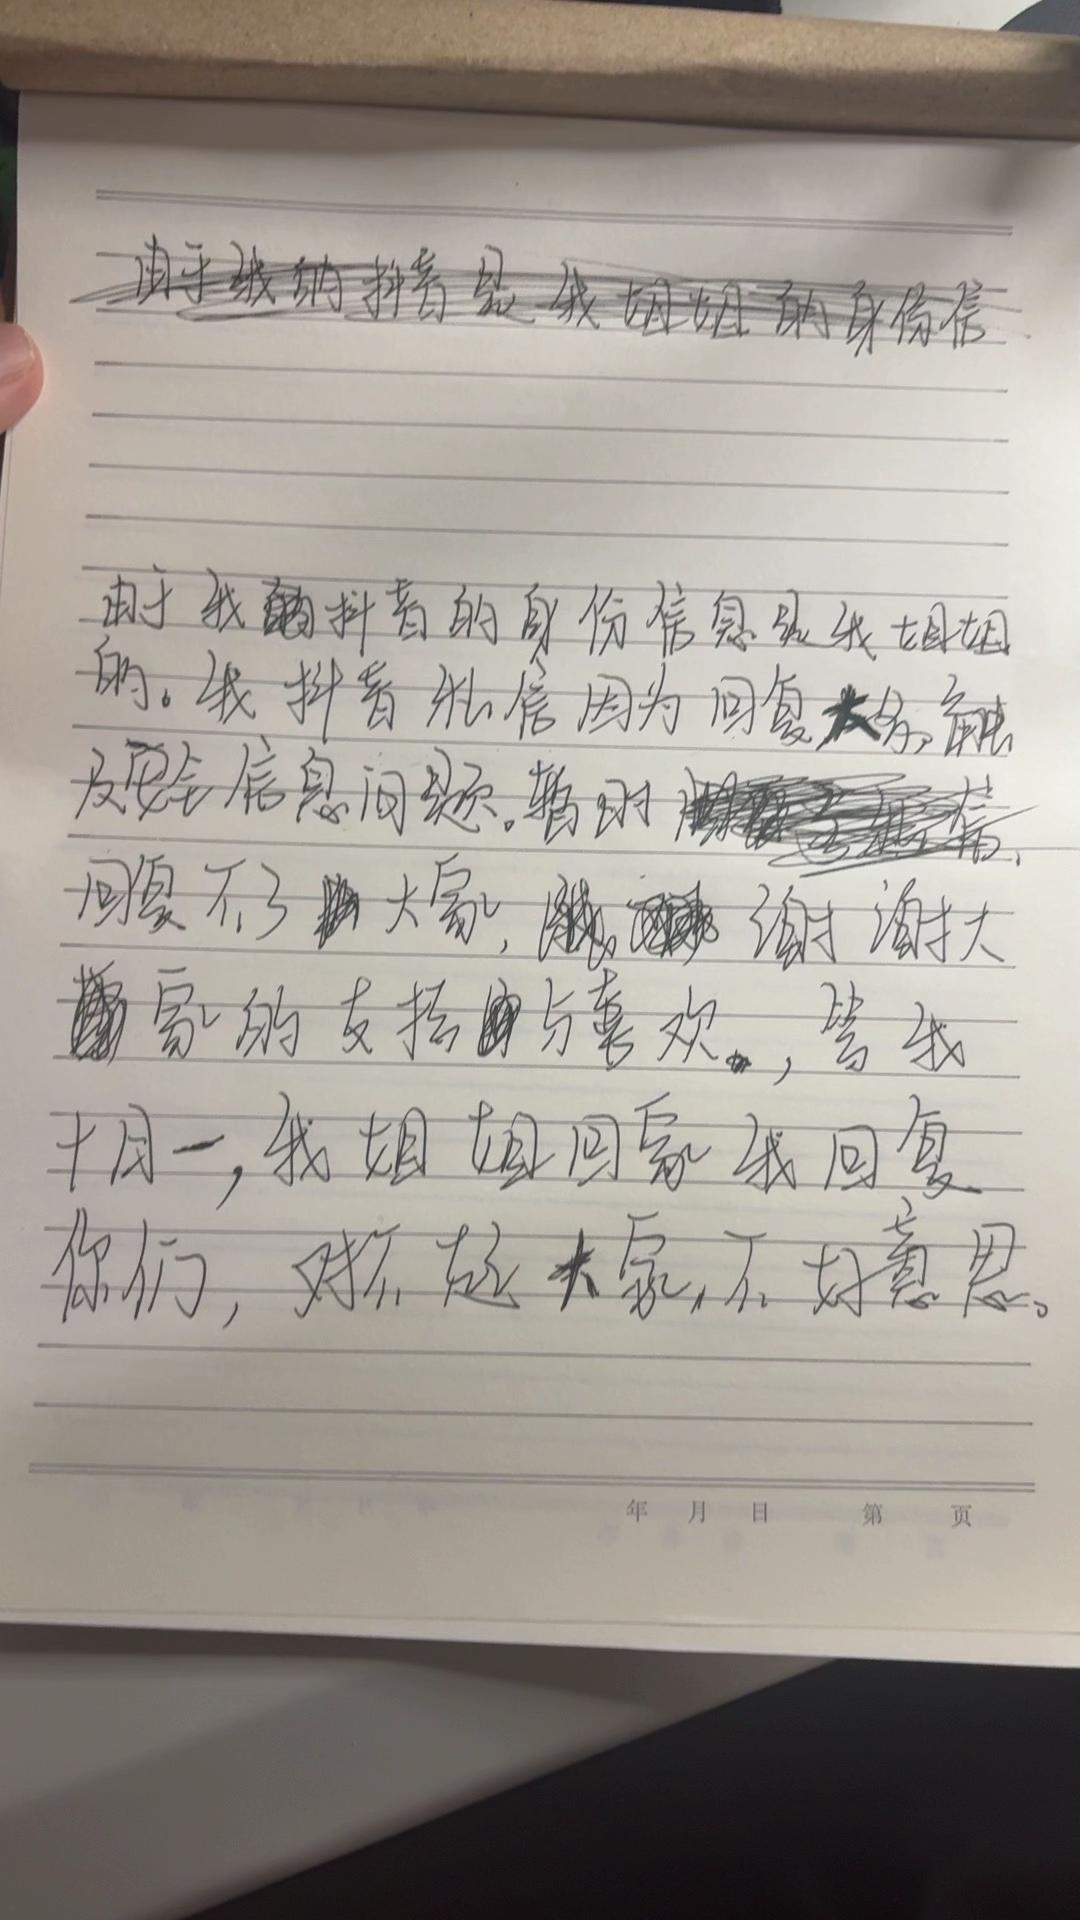 由于我的抖音是我姐姐的身份信
由于我抖音的身份信息是我姐姐
的。我抖音私信因为回复太多,触
及安全信息问题。暂时
回复不了大家,谢谢大
家的支持与喜欢。,等我
十月一,我姐姐回家我回复
你们,对不起大家,不好意思。
年 月 日 第 页